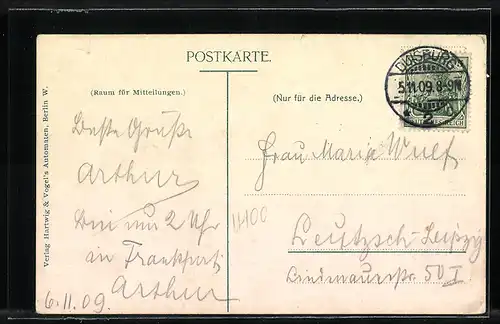 POSTKARTE.
(Raum für Mitteilungen.)
(Nur für die Adresse.)
DUISBURG
5.11.09. 8-9N
2
Beste Grüße
Arthur
Bin um 2 Uhr
in Frankfurt
Arthur
6.11.09.
11400
Frau Marie Wulf
Leutzsch-Leipzig
Lindenauerstr. 50 I
Verlag Hartwig & Vogel's Automaten, Berlin W.